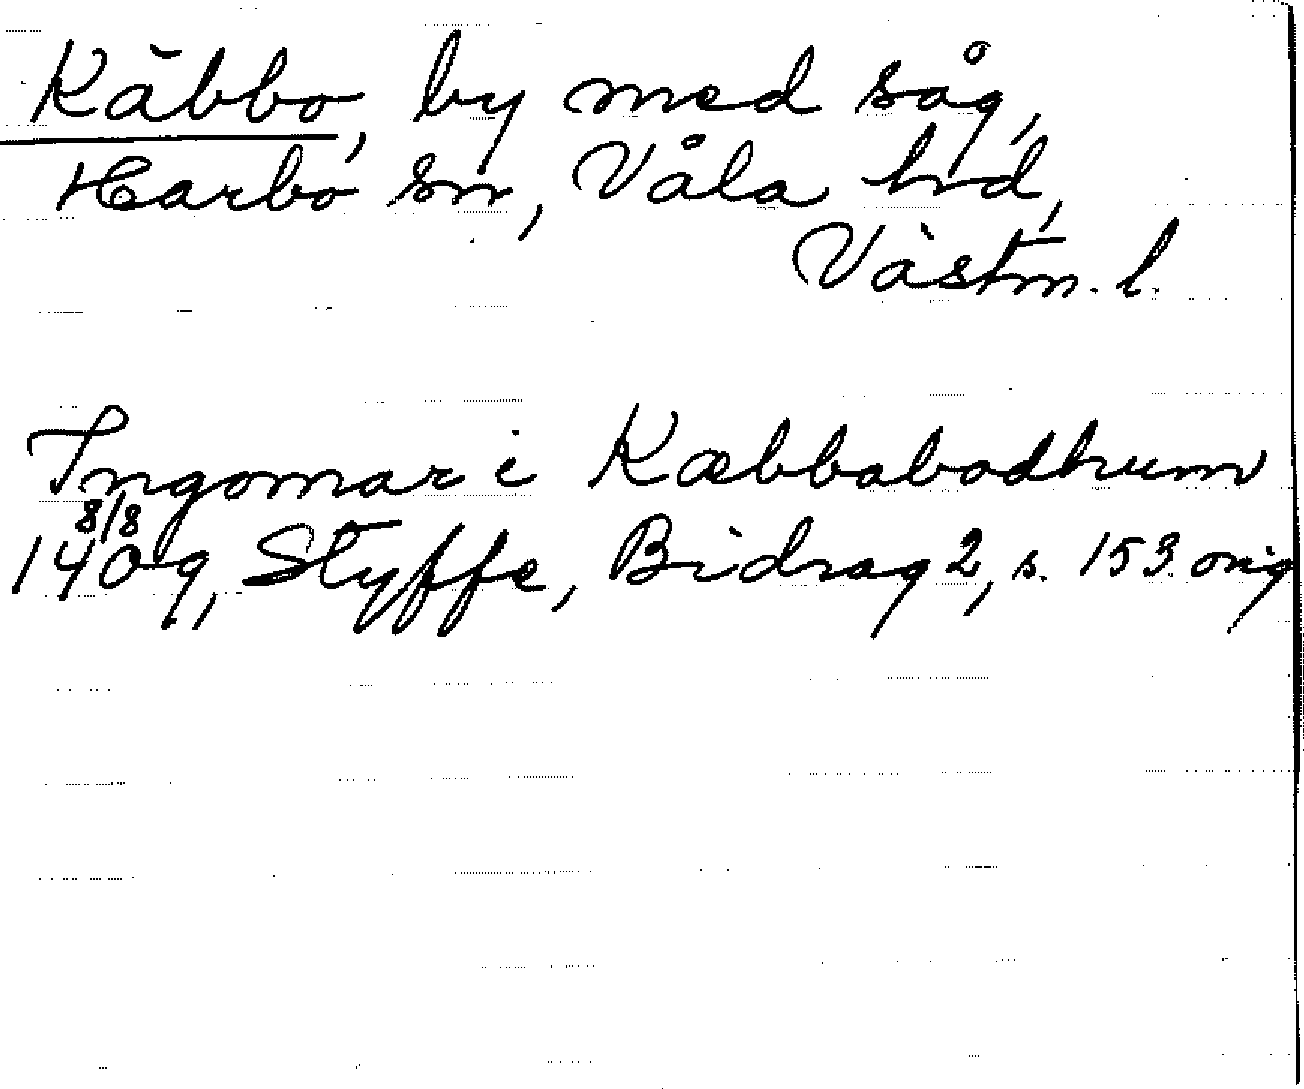 Käbbo, by med såg,
Harbo sn, Våla hd,
Västm. l.
Ingomar i Kæbbabodhum
8/8
1409, Styffe, Bidrag 2, s. 153. orig